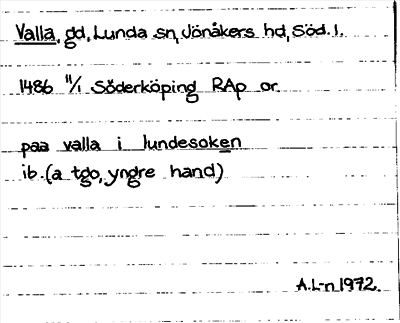 Valla, gd, Lunda sn, Jönåkers hd, Söd. l.
1486 11/1 Söderköping RAp or.
paa valla i lundesoken
ib. (a tgo, yngre hand)
A.L-n 1972.